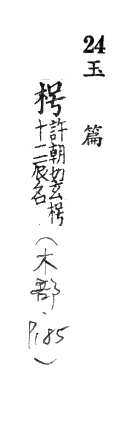 24 玉篇
枵 許朝切玄枵
十二辰名.(木部、P185)